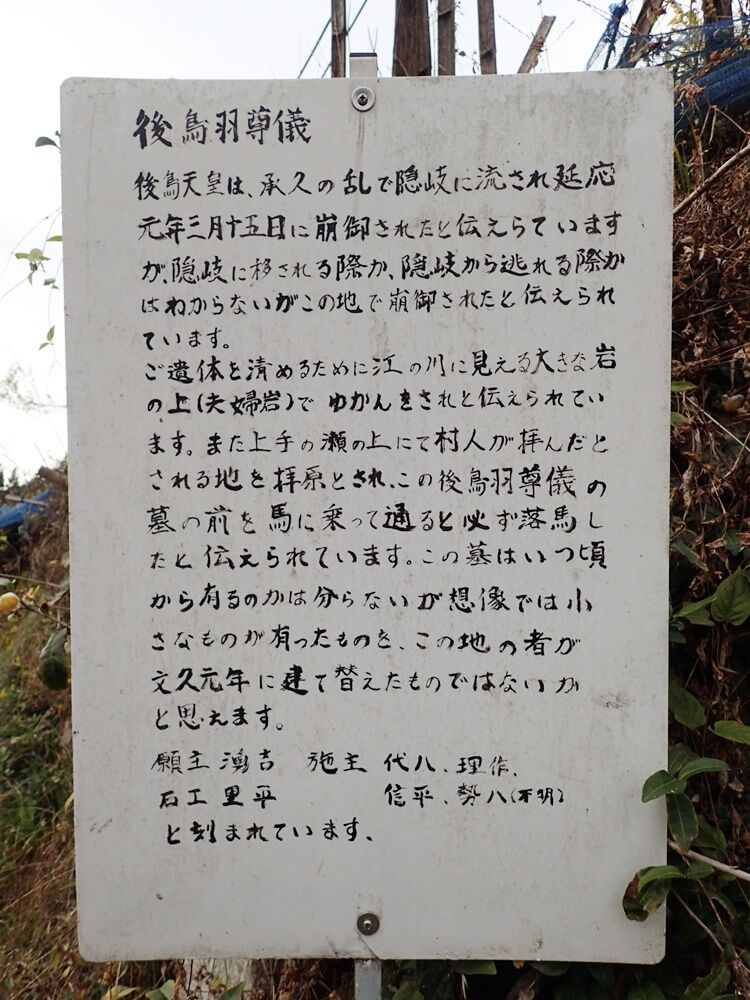 後鳥羽尊儀
後鳥天皇は、承久の乱で隠岐に流され延応
元年三月十五日に崩御されたと伝えらています
が、隠岐に移される際か、隠岐から逃れる際か
はわからないがこの地で崩御されたと伝えられ
ています。
ご遺体を清めるために江の川に見える大きな岩
の上(夫婦岩)でゆかんをされと伝えられてい
ます。また上手の瀬の上にて村人が拝んだと
される地を拝原とされ、この後鳥羽尊儀の
墓の前を馬に乗って通ると必ず落馬し
たと伝えられています。この墓はいつ頃
から有るのかは分らないが想像では小
さなものが有ったものを、この地の者が
文久元年に建て替えたものではないか
と思えます。
願主 湧吉 施主 代八、理作、
石工 里平 信平、勢八(不明)
と刻まれています、